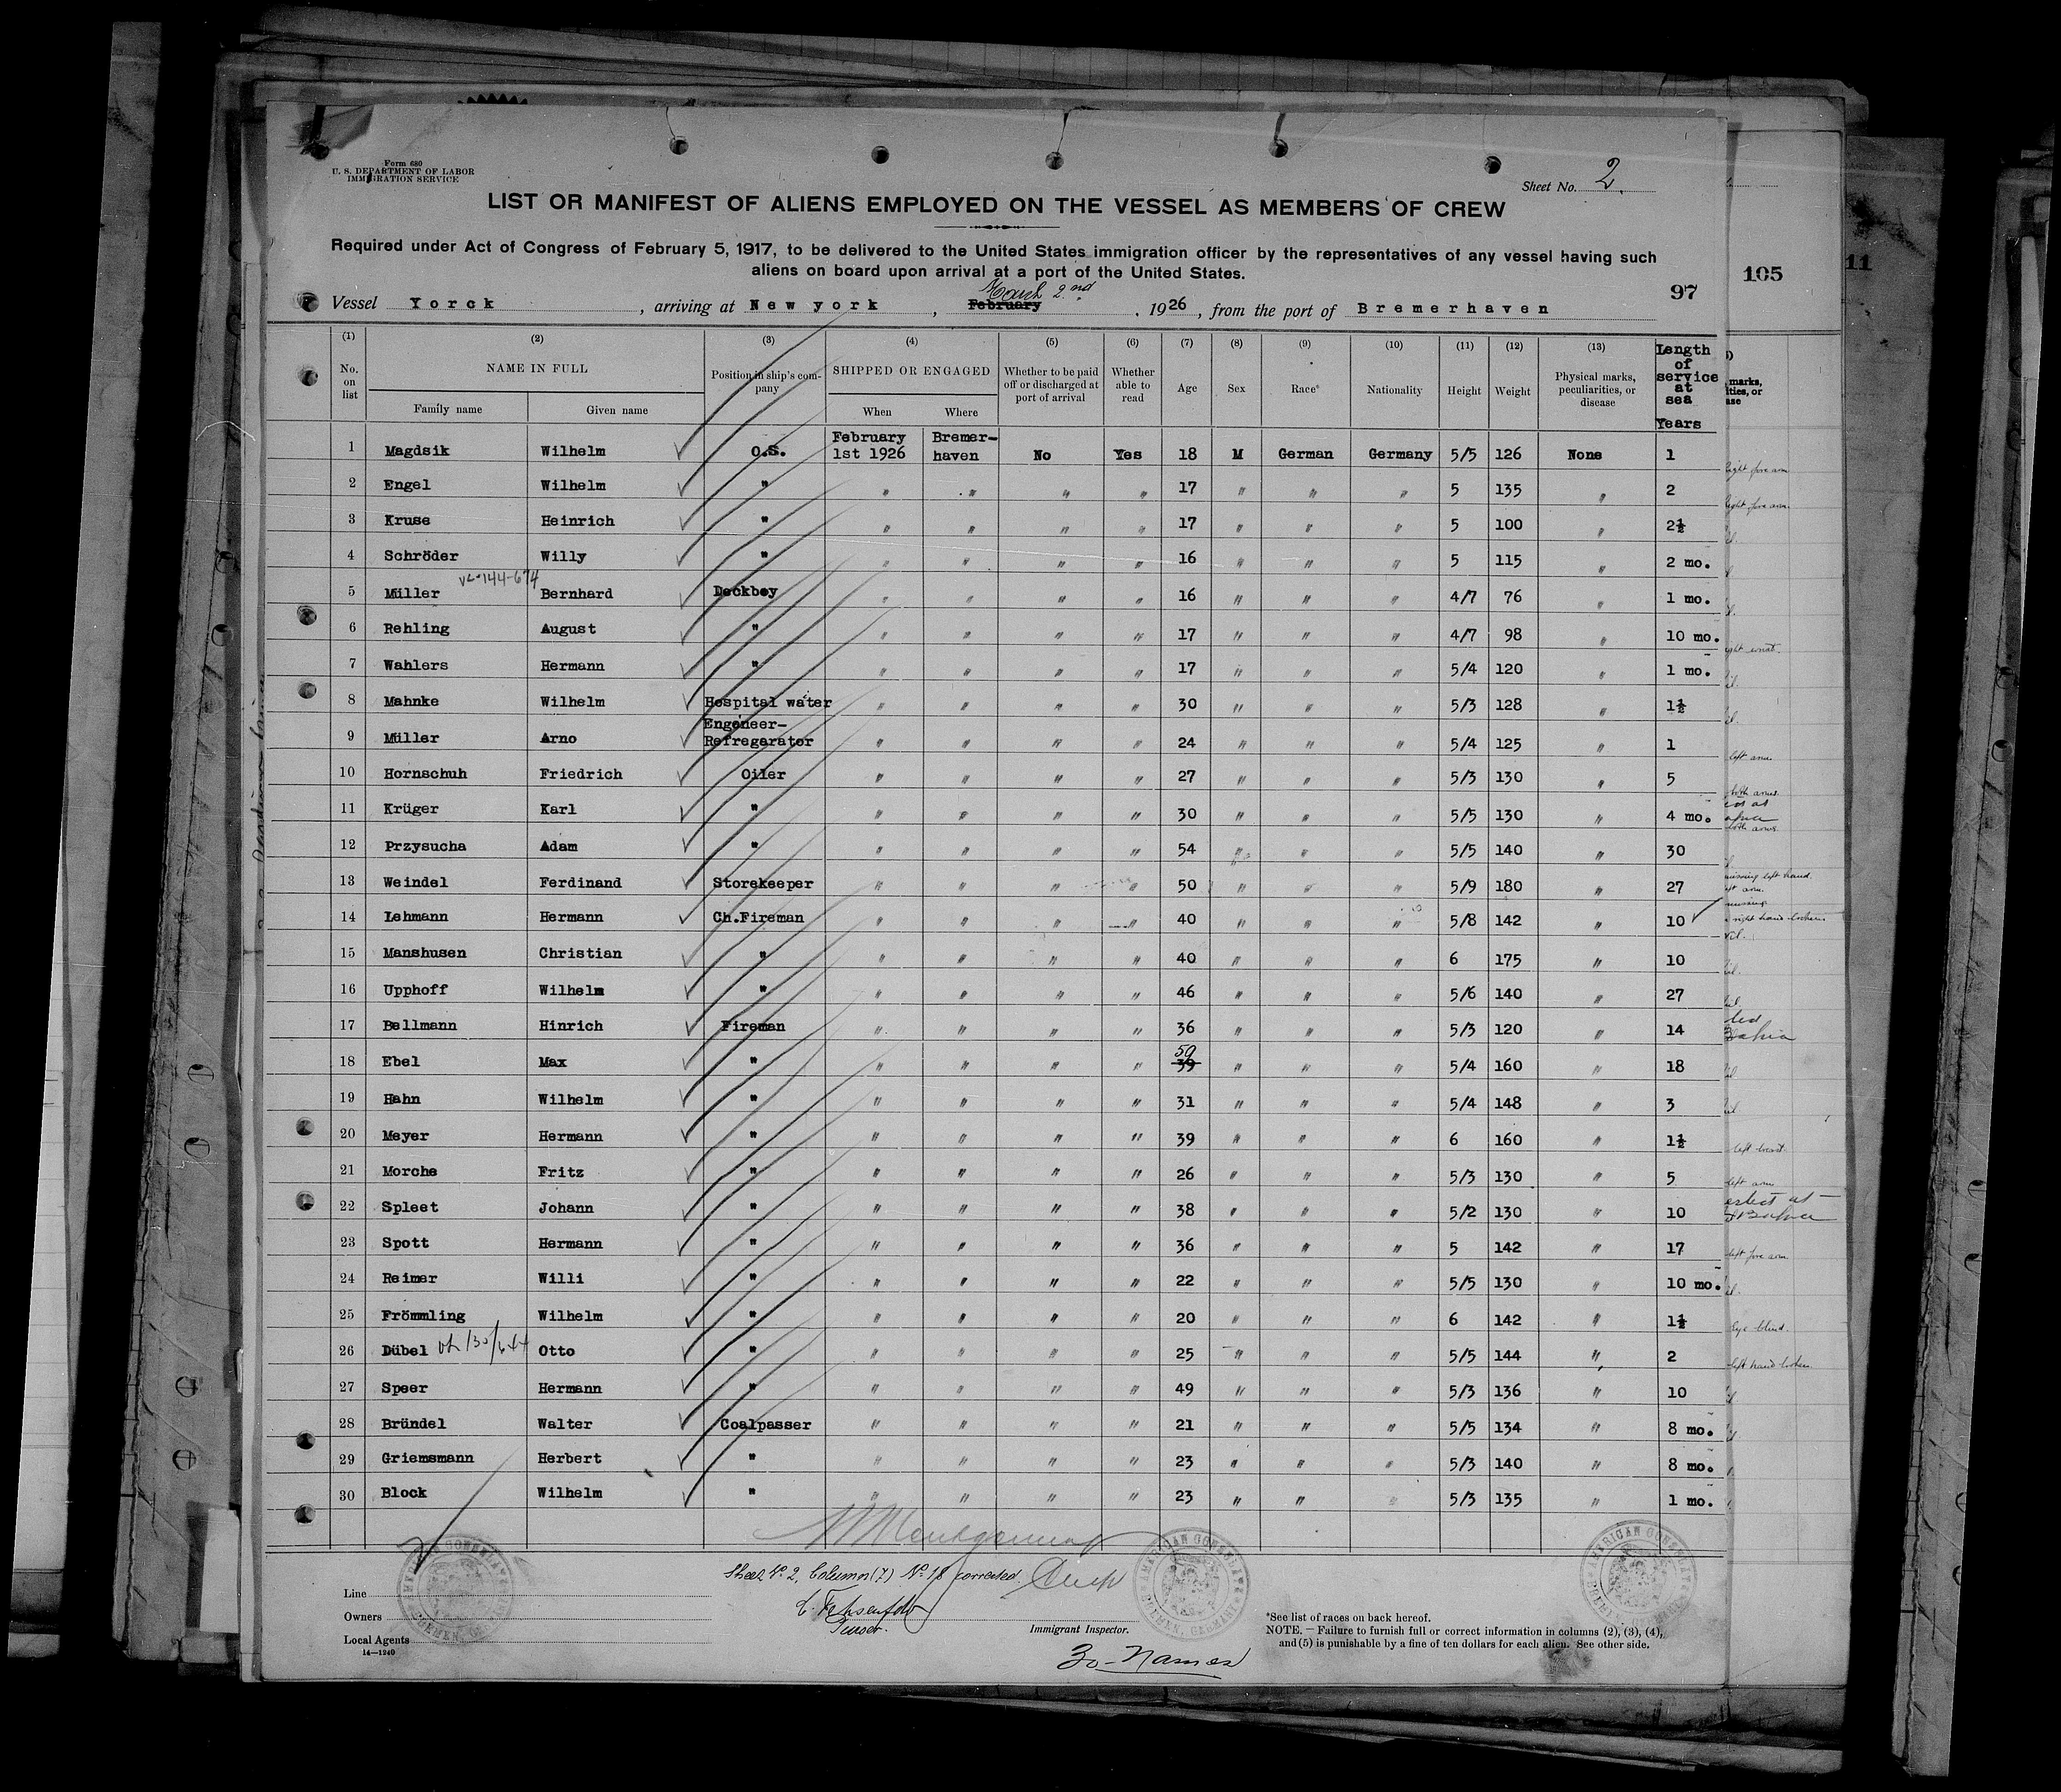 Form 680
U. S. DEPARTMENT OF LABOR
IMMIGRATION SERVICE
Sheet No. 2.
LIST OR MANIFEST OF ALIENS EMPLOYED ON THE VESSEL AS MEMBERS OF CREW
Required under Act of Congress of February 5, 1917, to be delivered to the United States immigration officer by the representatives of any vessel having such
aliens on board upon arrival at a port of the United States.
97
105
11
March 2nd
Vessel Yorck , arriving at New york , February , 1926 , from the port of Bremerhaven
(1) (2) (3) (4) (5) (6) (7) (8) (9) (10) (11) (12) (13)
No. on list
NAME IN FULL
Family name Given name
Position in ship's company
SHIPPED OR ENGAGED
When Where
Whether to be paid off or discharged at port of arrival
Whether able to read
Age Sex Race* Nationality Height Weight
Physical marks, peculiarities, or disease
Length of service at sea Years
1 Magdsik Wilhelm O.S. February 1st 1926 Bremer-haven No Yes 18 M German Germany 5/5 126 None 1
2 Engel Wilhelm " " " " " 17 " " " 5 135 " 2
3 Kruse Heinrich " " " " " 17 " " " 5 100 " 2½
4 Schröder Willy " " " " " 16 " " " 5 115 " 2 mo.
144-674
5 Müller Bernhard Deckboy " " " " 16 " " " 4/7 76 " 1 mo.
6 Rehling August " " " " " 17 " " " 4/7 98 " 10 mo.
7 Wahlers Hermann " " " " " 17 " " " 5/4 120 " 1 mo.
8 Mahnke Wilhelm Hospital water " " " " 30 " " " 5/3 128 " 1½
9 Müller Arno Engeneer-Refregerator " " " " 24 " " " 5/4 125 " 1
10 Hornschuh Friedrich Oiler " " " " 27 " " " 5/3 130 " 5
11 Krüger Karl " " " " " 30 " " " 5/5 130 " 4 mo.
12 Przysucha Adam " " " " " 54 " " " 5/5 140 " 30
13 Weindel Ferdinand Storekeeper " " " " 50 " " " 5/9 180 " 27
14 Lehmann Hermann Ch.Fireman " " " " 40 " " " 5/8 142 " 10
15 Manshusen Christian " " " " " 40 " " " 6 175 " 10
16 Upphoff Wilhelm " " " " " 46 " " " 5/6 140 " 27
17 Bellmann Hinrich Fireman " " " " 36 " " " 5/3 120 " 14
18 Ebel Max " " " " " 50 39 " " " 5/4 160 " 18
19 Hahn Wilhelm " " " " " 31 " " " 5/4 148 " 3
20 Meyer Hermann " " " " " 39 " " " 6 160 " 1½
21 Morche Fritz " " " " " 26 " " " 5/3 130 " 5
22 Spleet Johann " " " " " 38 " " " 5/2 130 " 10
23 Spott Hermann " " " " " 36 " " " 5 142 " 17
24 Reimer Willi " " " " " 22 " " " 5/5 130 " 10 mo.
25 Frömmling Wilhelm " " " " " 20 " " " 6 142 " 1½
26 Dübel Otto " " " " " 25 " " " 5/5 144 " 2
27 Speer Hermann " " " " " 49 " " " 5/3 136 " 10
28 Bründel Walter Coalpasser " " " " 21 " " " 5/5 134 " 8 mo.
29 Griemsmann Herbert " " " " " 23 " " " 5/3 140 " 8 mo.
30 Block Wilhelm " " " " " 23 " " " 5/3 135 " 1 mo.
Sheet No. 2, Column (7) No. 18 corrected.
Purser.
Line
Owners
Local Agents
14—1240
Immigrant Inspector.
30-Names
AMERICAN CONSULATE
BREMEN, GERMANY
*See list of races on back hereof.
NOTE. — Failure to furnish full or correct information in columns (2), (3), (4),
and (5) is punishable by a fine of ten dollars for each alien. See other side.